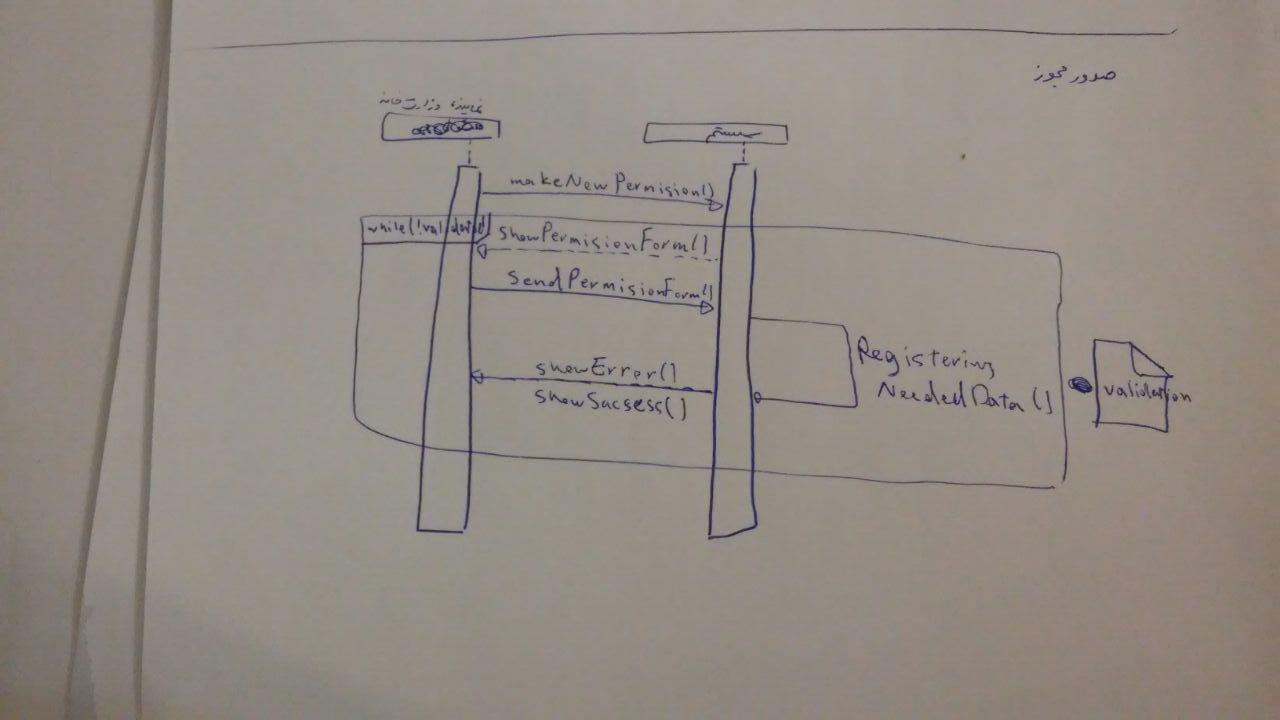 صدور مجوز
نماینده وزارت خانه
سیستم
makeNewPermision()
while(!validation)
showPermisionForm()
sendPermisionForm()
Registering
NeededData()
showError()
showSacsess()
validation